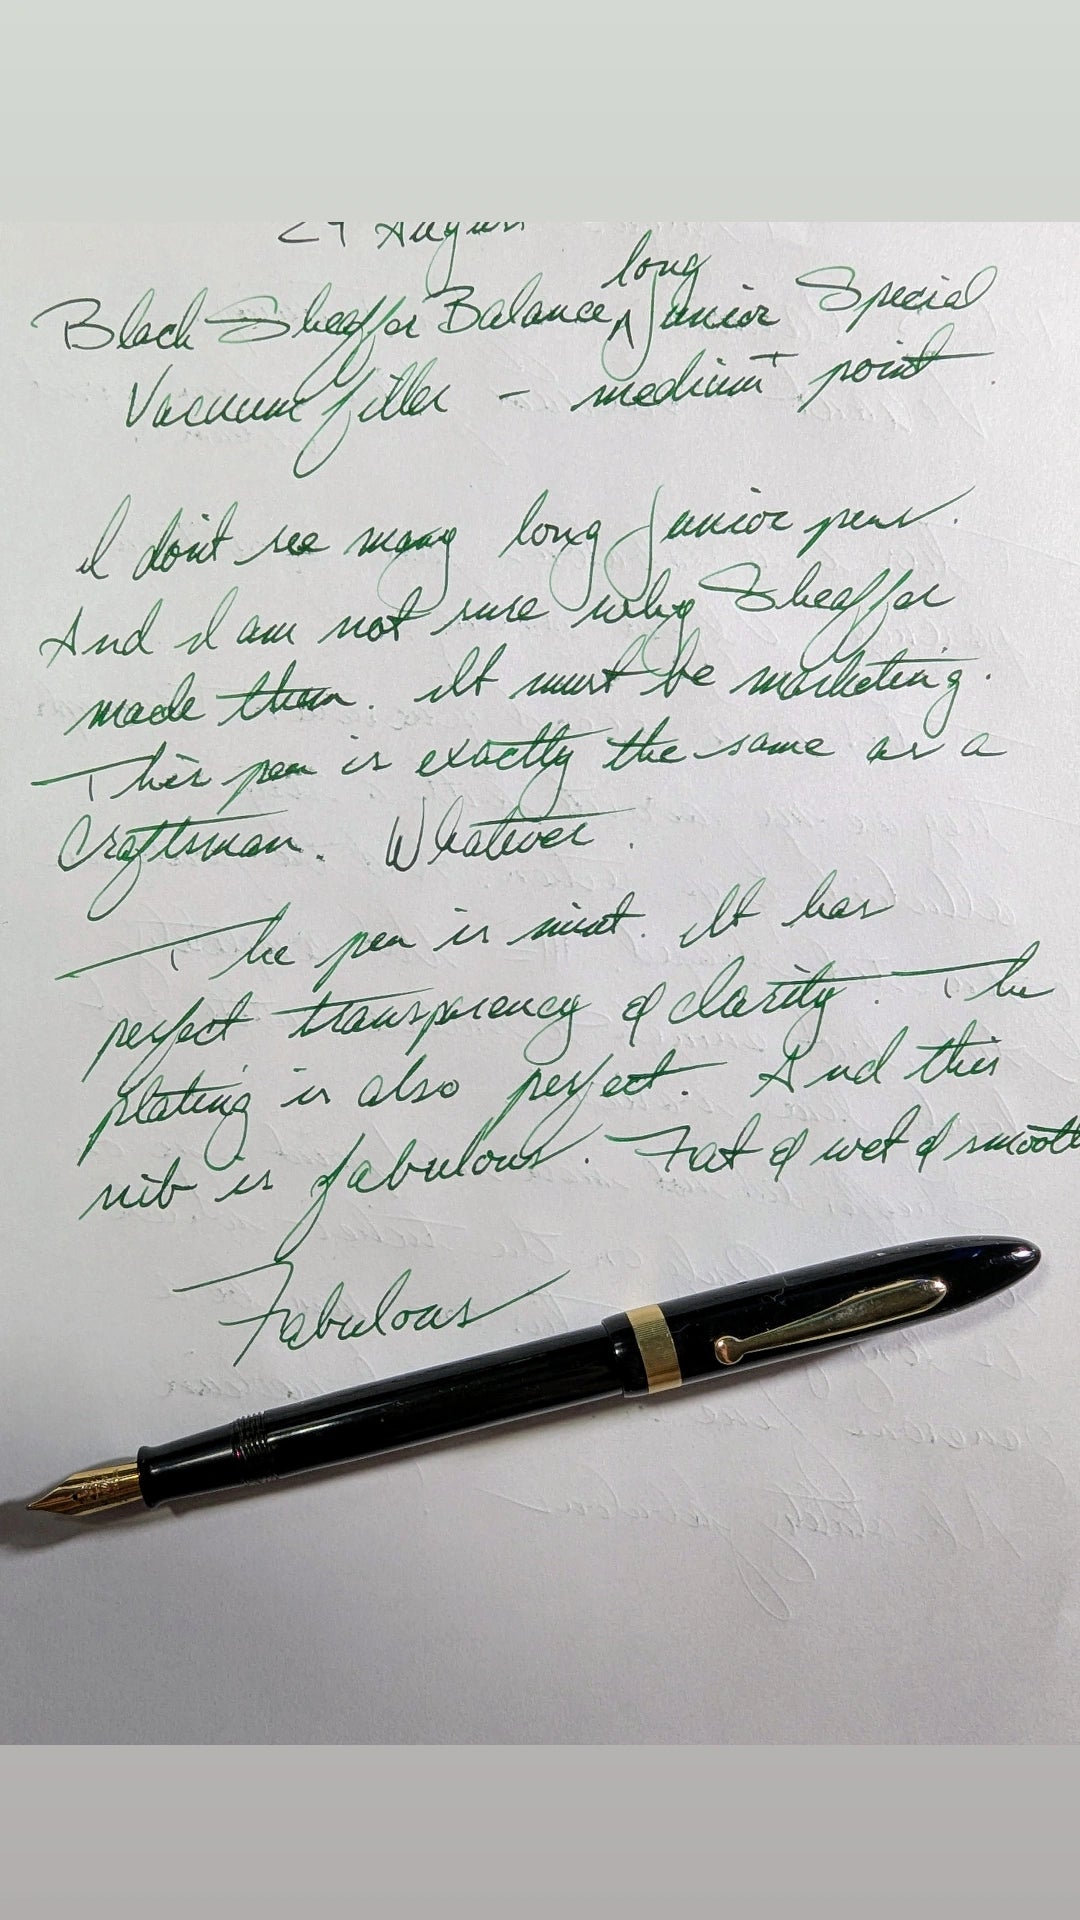 August
Black Sheaffer Balance ^long Junior Special
Vacuum filler - medium+ point.
I don't see many long Junior pens.
And I am not sure why Sheaffer
made them. It must be marketing.
This pen is exactly the same as a
Craftsman. Whatever.
The pen is mint. It has
perfect transparency & clarity. The
plating is also perfect. And this
nib is fabulous. Fat & wet & smooth
Fabulous